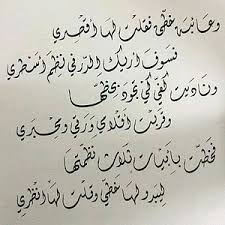 وعائبة خطي فقلت لها اقصري
فسوف أريك الدر في نظم أسطري
وناديت كفي كي يجود بخطها
وقربت أقلامي ورقي ومحبري
فخطت بأبيات ثلاث نظمتها
ليبدو لها خطي وقلت لها انظري